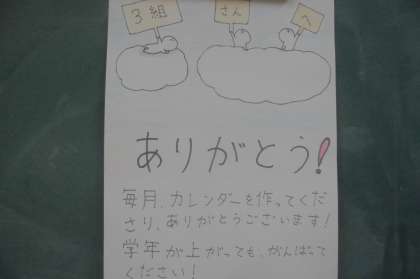 3組 さん へ
ありがとう!
毎月、カレンダーを作ってくだ
さり、ありがとうございます!
学年が上がっても、がんばって
ください!